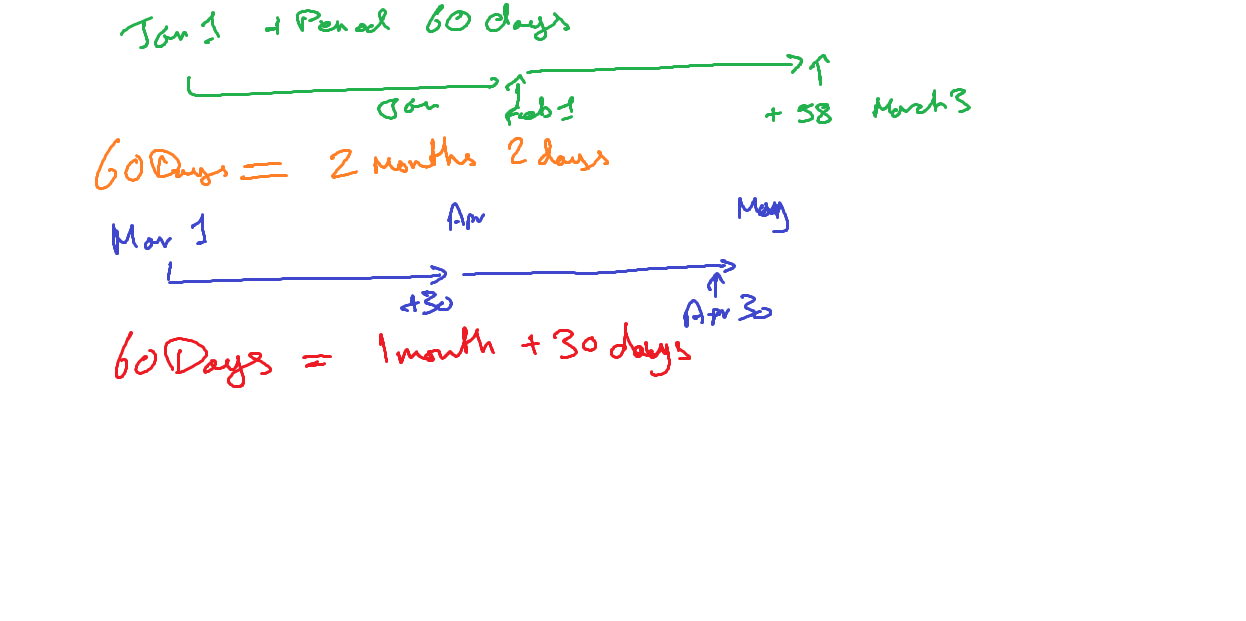 Jan 1 + Period 60 days
Jan Feb 1 + 58 March 3
60 Days = 2 months 2 days
Mar 1 Apr May
+30 Apr 30
60 Days = 1 month + 30 days